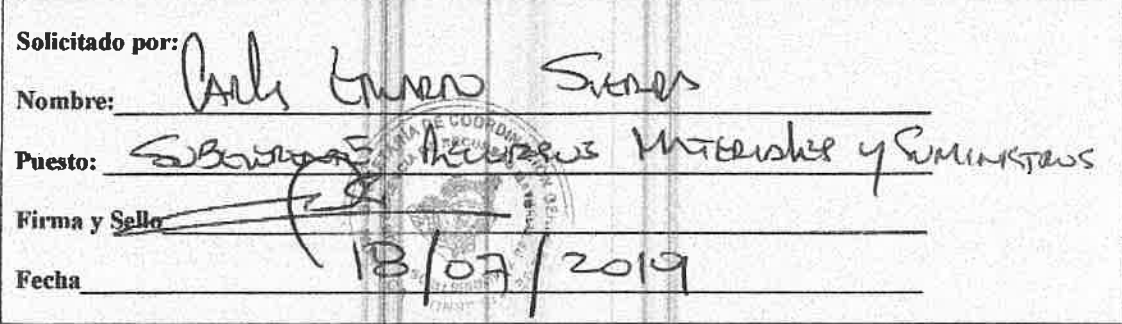 Solicitado por:
Nombre: Carlos Eduardo Sierra
Puesto: Subgerente Recursos Materiales y Suministros
Firma y Sello
Fecha 18/07/2019
DE COORDINACIÓN